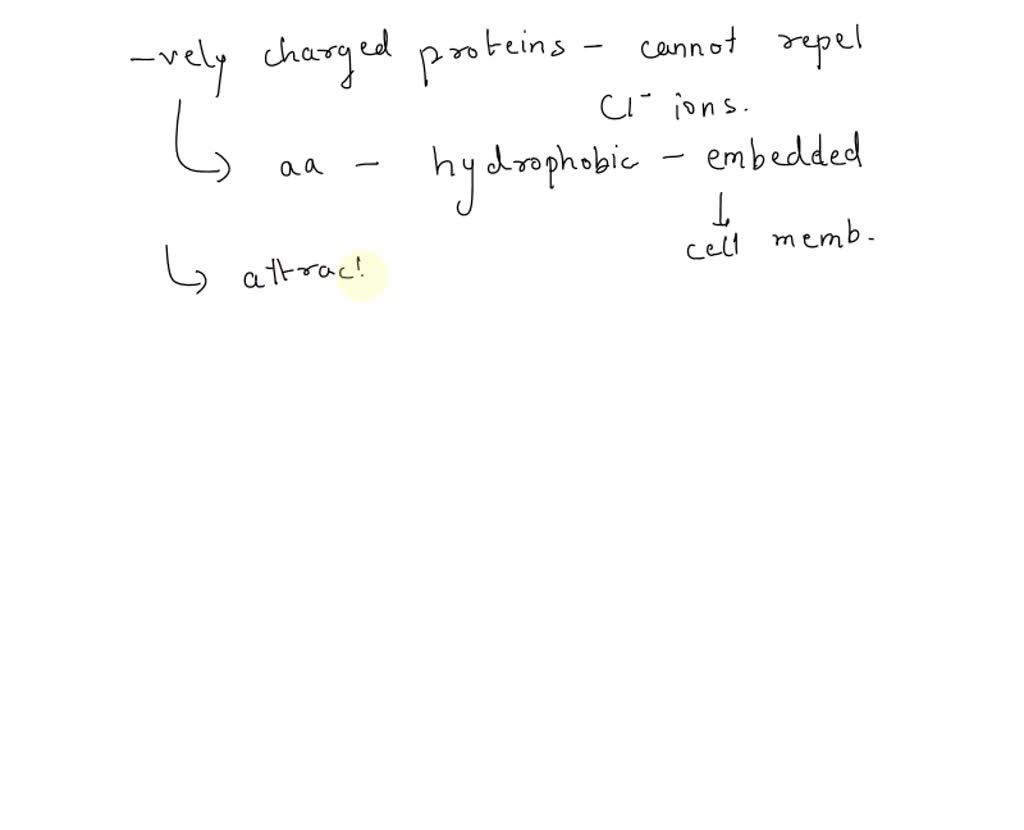 -vely charged proteins - cannot repel
Cl⁻ ions.
↳ aa - hydrophobic - embedded
↓
cell memb.
↳ attrac